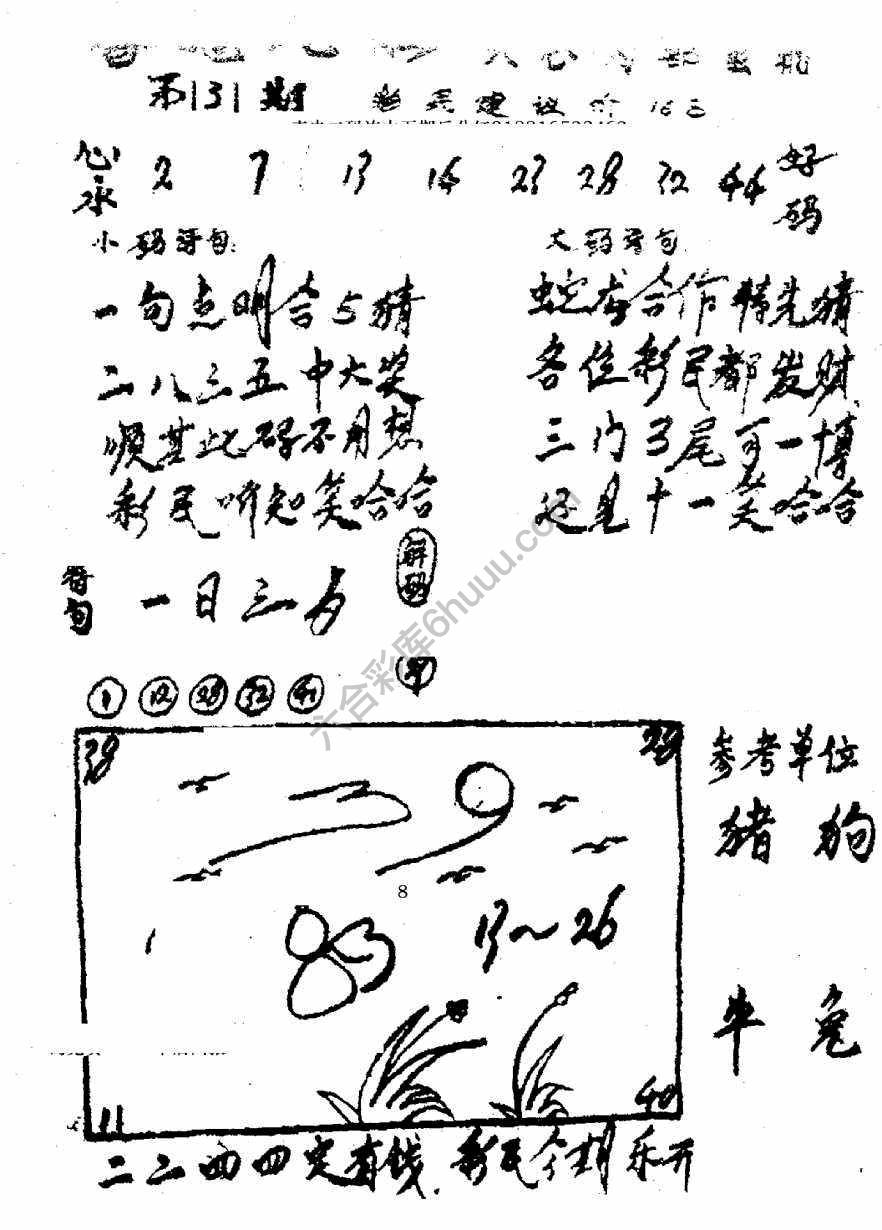 第131期 彩民建议价
心水 2 7 13 14 23 28 32 44 好码
小码牙句:
一句点明合5猜
二八三五中大奖
顺其此码不用想
彩民听知笑哈哈
大码牙句:
蛇龙合作特先猜
各位彩民都发财
三门3尾可一博
还见十一笑哈哈
解码
一日三
1 12 28 32 41
六合彩库6huuu.com
38 28
参考单位
猪 狗
8
13~26
牛 兔
11 40
二三四四定有钱.彩民今期乐开